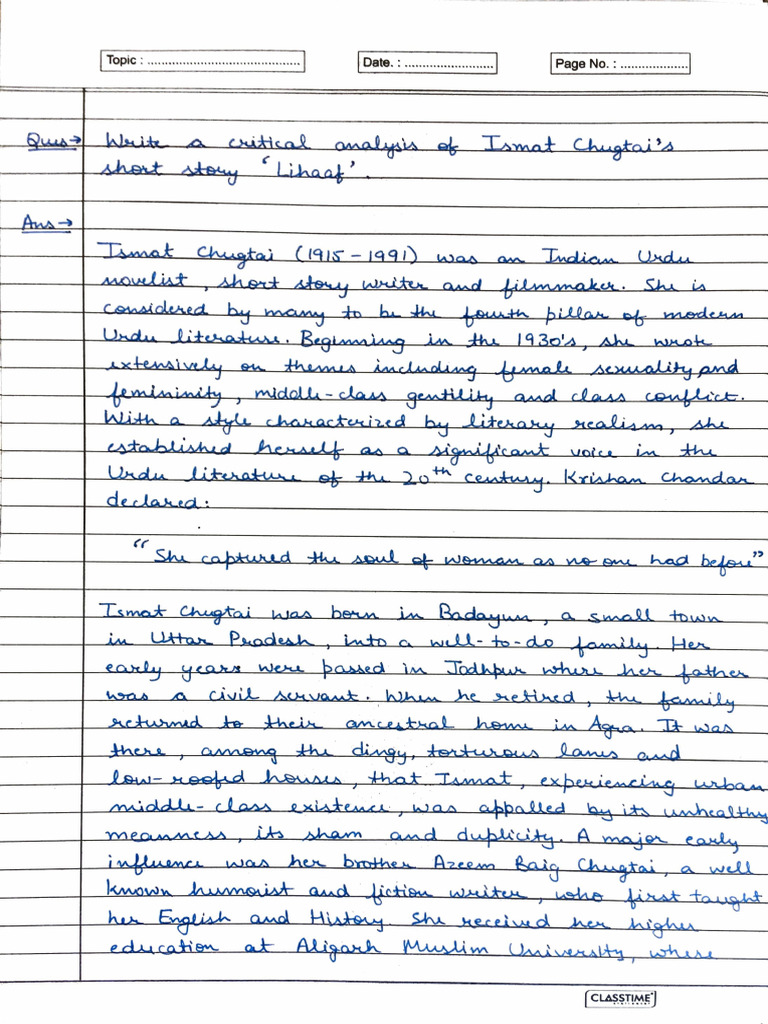 Topic : ..........................................
Date. : ........................
Page No. : ..................
Ques→ Write a critical analysis of Ismat Chugtai's
short story 'Lihaaf'.
Ans→
Ismat Chugtai (1915-1991) was an Indian Urdu
novelist, short story writer and filmmaker. She is
considered by many to be the fourth pillar of modern
Urdu literature. Beginning in the 1930's, she wrote
extensively on themes including female sexuality and
femininity, middle-class gentility and class conflict.
With a style characterized by literary realism, she
established herself as a significant voice in the
Urdu literature of the 20th century. Krishan Chandar
declared:
"She captured the soul of woman as no one had before"
Ismat Chugtai was born in Badayun, a small town
in Uttar Pradesh, into a well-to-do family. Her
early years were passed in Jodhpur where her father
was a civil servant. When he retired, the family
returned to their ancestral home in Agra. It was
there, among the dingy, torturous lanes and
low-roofed houses, that Ismat, experiencing urban
middle-class existence, was appalled by its unhealthy
meanness, its sham and duplicity. A major early
influence was her brother Azeem Baig Chugtai, a well
known humorist and fiction writer, who first taught
her English and History. She received her higher
education at Aligarh Muslim University, where
CLASSTIME